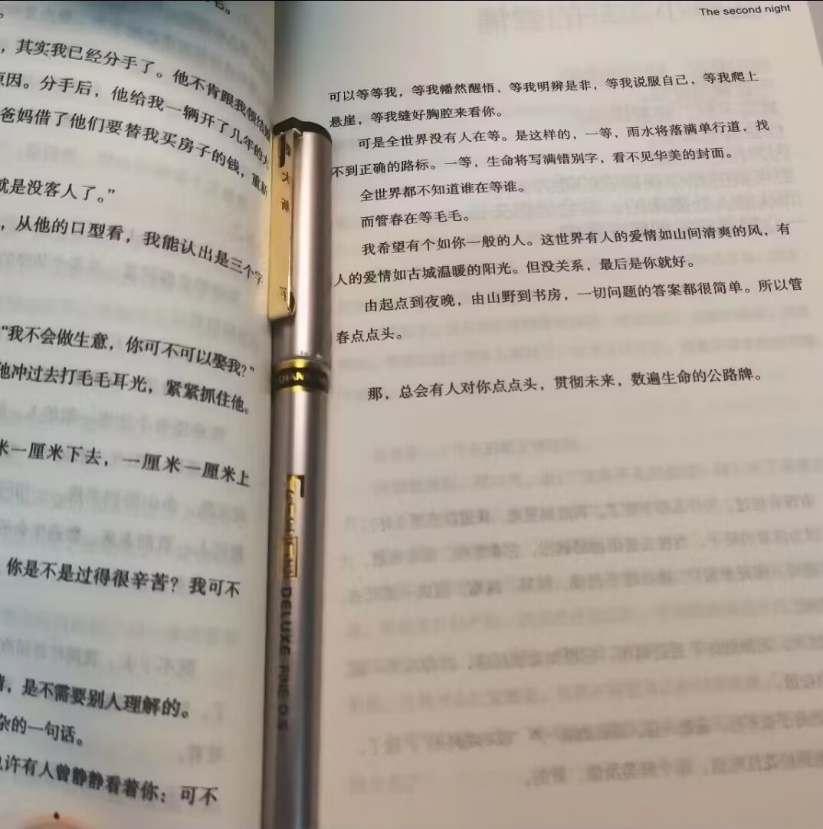 ，其实我已经分手了。他不肯跟我
原因。分手后，他给我一辆开了几年的
爸妈借了他们要替我买房子的钱，重新
就是没客人了。”
，从他的口型看，我能认出是三个字
“我不会做生意，你可不可以娶我？”
他冲过去打毛毛耳光，紧紧抓住他。
米一厘米下去，一厘米一厘米上
你是不是过得很辛苦？我可不
，是不需要别人理解的。
杂的一句话。
也许有人曾静静看着你：可不
The second night
可以等等我，等我幡然醒悟，等我明辨是非，等我说服自己，等我爬上
悬崖，等我缝好胸腔来看你。
可是全世界没有人在等。是这样的，一等，雨水将落满单行道，找
不到正确的路标。一等，生命将写满错别字，看不见华美的封面。
全世界都不知道谁在等谁。
而管春在等毛毛。
我希望有个如你一般的人。这世界有人的爱情如山间清爽的风，有
人的爱情如古城温暖的阳光。但没关系，最后是你就好。
由起点到夜晚，由山野到书房，一切问题的答案都很简单。所以管
春点点头。
那，总会有人对你点点头，贯彻未来，数遍生命的公路牌。
DELUXE FINE 0.5